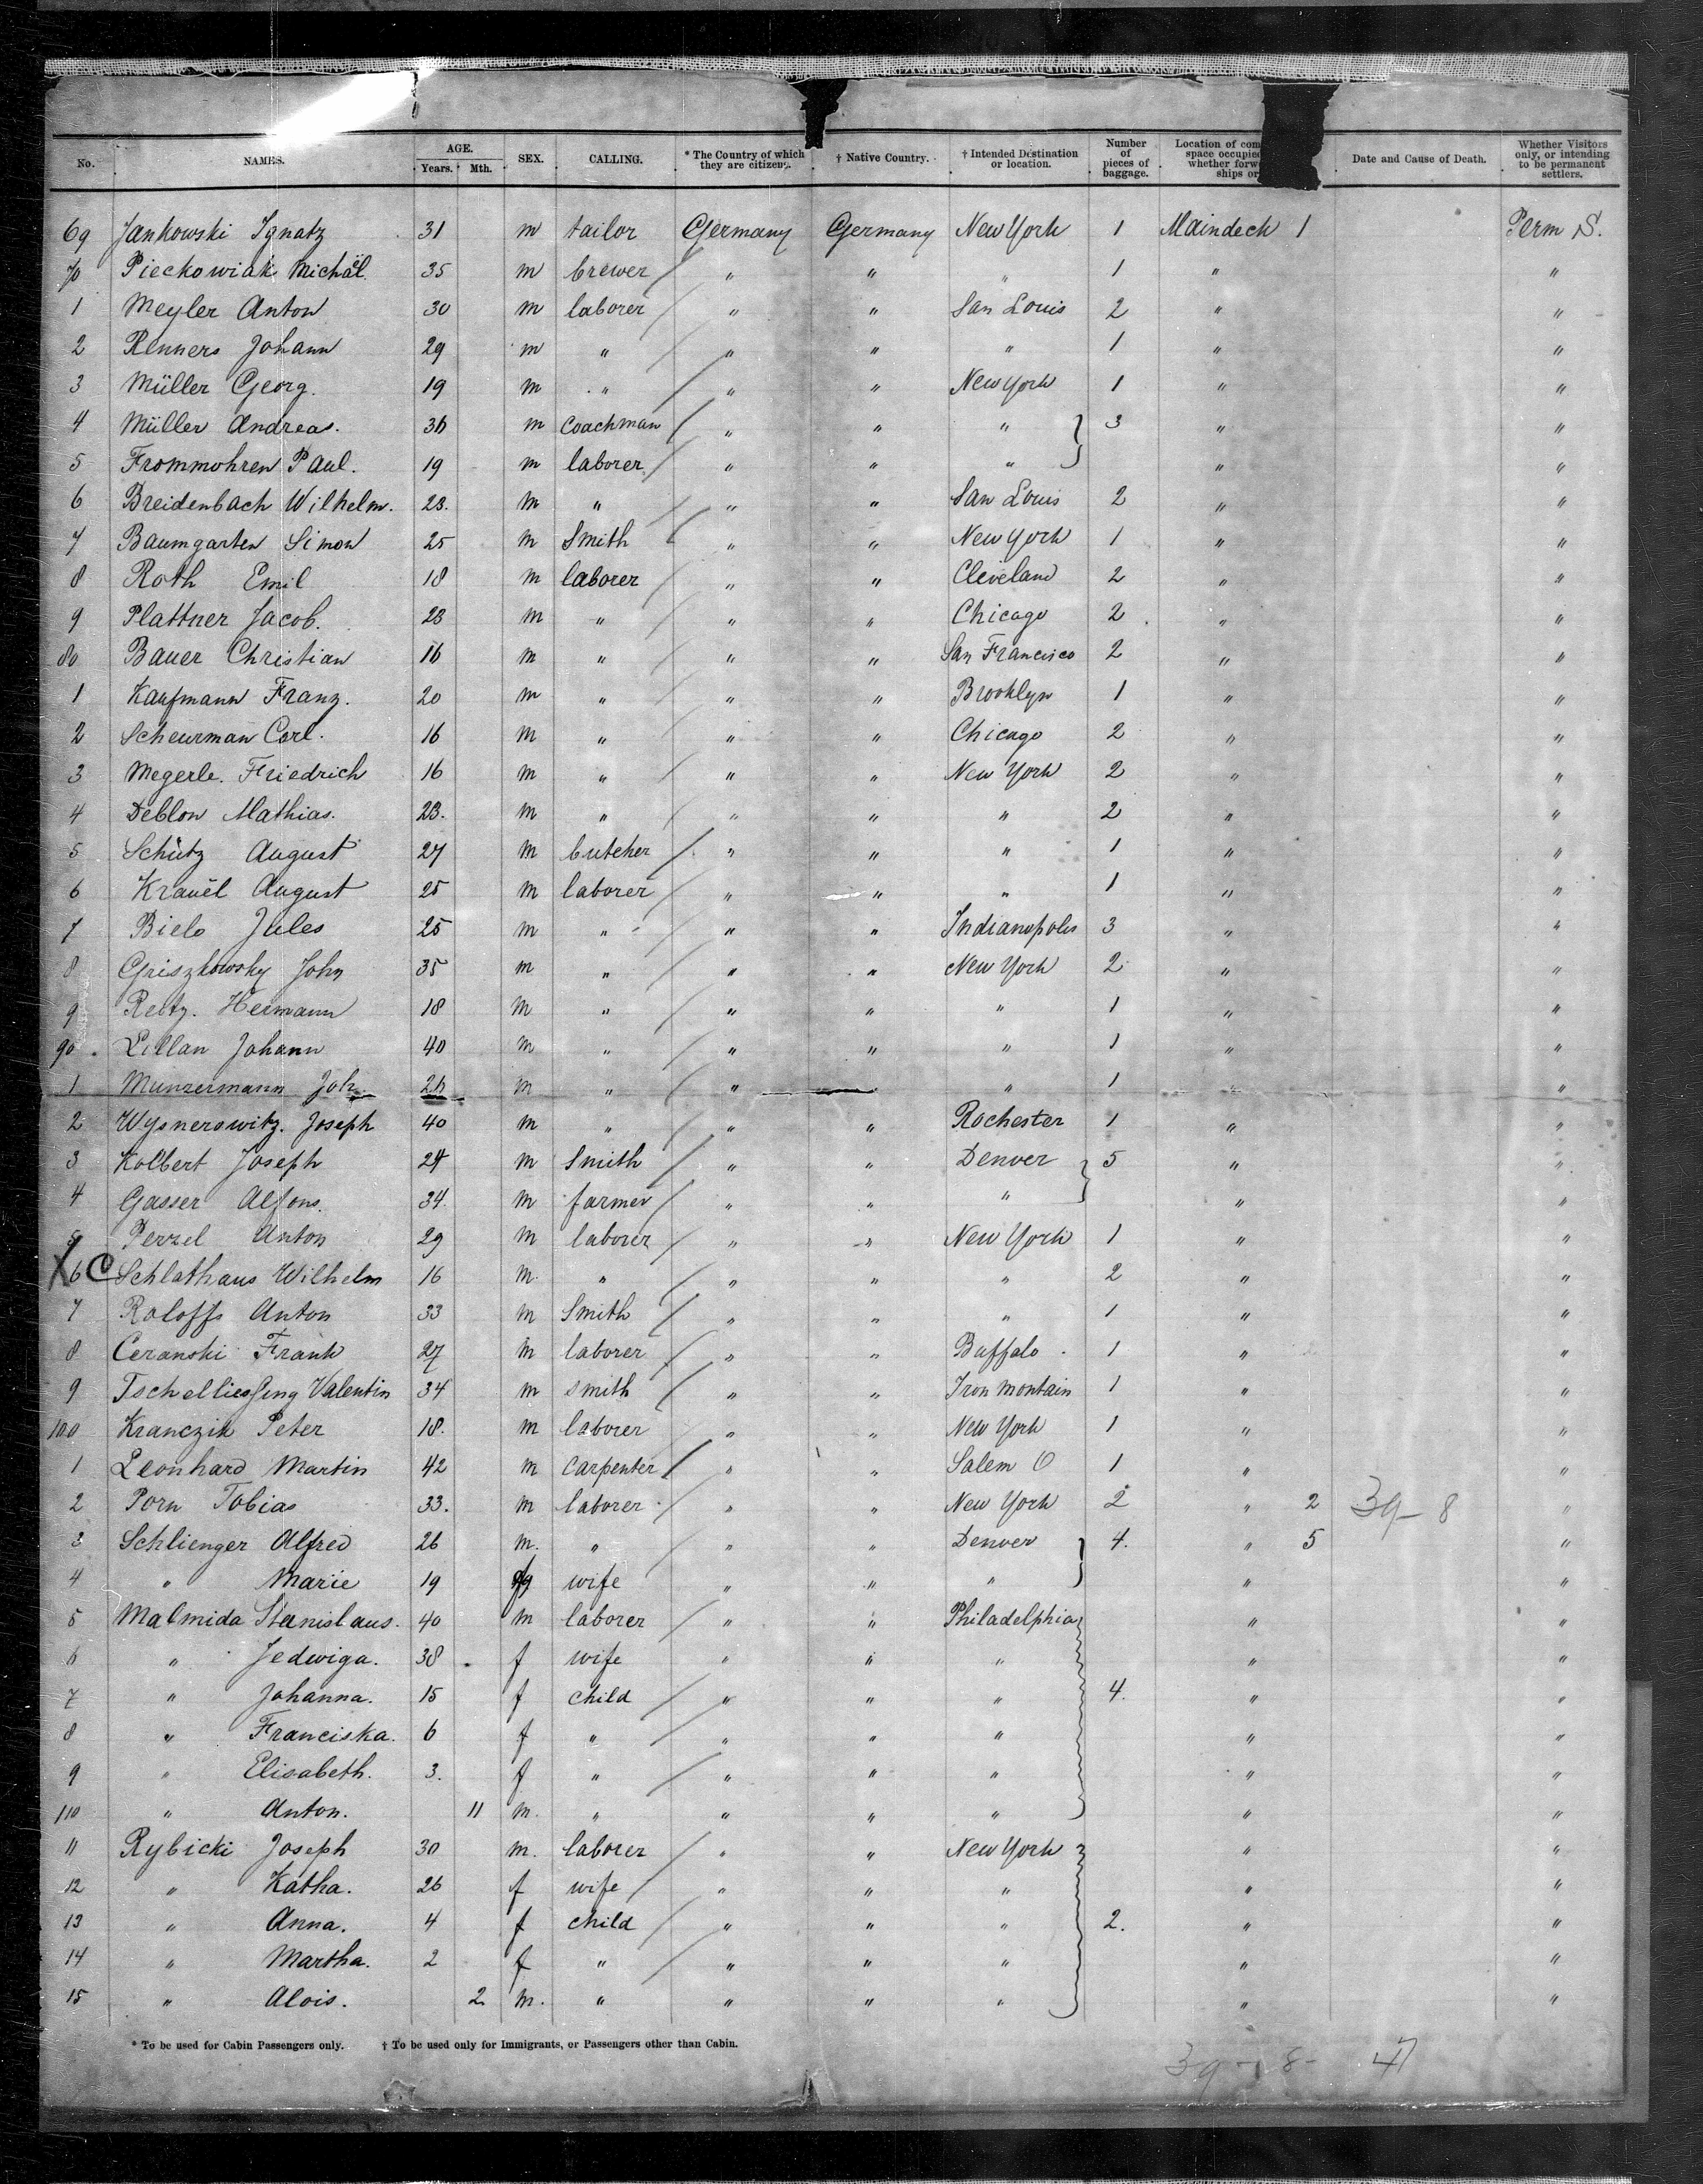 No. NAMES. AGE. Years. Mth. SEX. CALLING. * The Country of which they are citizens. † Native Country. † Intended Destination or location. Number of pieces of baggage. Location of com space occupied whether forw ships or Date and Cause of Death. Whether Visitors only, or intending to be permanent settlers.
69 Jankowski Ignatz 31 m tailor Germany Germany New York 1 Maindeck 1 Perm S.
70 Pieckowiak Michäl 35 m brewer " " " 1 " "
1 Meyler Anton 30 m laborer " " San Louis 2 " "
2 Renners Johann 29 m " " " " 1 " "
3 Müller Georg. 19 m " " " New York 1 " "
4 Müller Andreas. 36 m Coachman " " " 3 " "
5 Frommohren Paul. 19 m laborer " " " " "
6 Breidenbach Wilhelm. 23. m " " " San Louis 2 " "
7 Baumgarten Simon 25 m Smith " " New York 1 " "
8 Roth Emil 18 m laborer " " Cleveland 2 " "
9 Plattner Jacob. 23 m " " " Chicago 2 " "
80 Bauer Christian 16 m " " " San Francisco 2 " "
1 Kaufmann Franz. 20 m " " " Brooklyn 1 " "
2 Scheurman Carl. 16 m " " " Chicago 2 " "
3 Megerle. Friedrich 16 m " " " New York 2 " "
4 Deblon Mathias. 23. m " " " " 2 " "
5 Schütz August 27 m butcher " " " 1 " "
6 Krauël August 25 m laborer " " " 1 " "
7 Bielo Jules 25 m " " " Indianapolis 3 " "
8 Griszkowsky John 35 m " " " New York 2 " "
9 Reitz. Hermann 18 m " " " " 1 " "
90 Lillan Johann 40 m " " " " 1 " "
1 Munzermann Joh. 26 m " " " 1 " "
2 Wysnerowitz. Joseph 40 m " " " Rochester 1 " "
3 Kolbert Joseph 24 m Smith " " Denver 5 " "
4 Gasser Alfons. 34. m farmer " " " " "
5 Perzel Anton 29 m laborer " " New York 1 " "
X 6 C Schlathaus Wilhelm 16 m. " " " " 2 " "
7 Roloffs Anton 33 m Smith " " " 1 " "
8 Ceranski Frank 27 m laborer " " Buffalo 1 " "
9 Valentin 34 m smith " " Iron montain 1 " "
100 Kranczik Peter 18. m laborer " " New York 1 " "
1 Leonhard Martin 42 m Carpenter " " Salem O 1 " "
2 Porn Tobias 33. m laborer " " New York 2 " 2 39-8 "
3 Schlienger Alfred 26 m. " " " Denver 4. " 5 "
4 " Marie 19 f wife " " " " "
5 Malmida Stanislaus. 40 m laborer " " Philadelphia " "
6 " Jedwiga. 38 f wife " " " " "
7 " Johanna. 15 f child " " " 4. " "
8 " Franciska. 6 f " " " " " "
9 " Elisabeth. 3. f " " " " " "
110 " Anton. 11 m. " " " " " "
11 Rybicki Joseph 30 m. laborer " " New York " "
12 " Katha. 26 f wife " " " " "
13 " Anna. 4 f child " " " 2. " "
14 " Martha. 2 f " " " " " "
15 " Alois. 2 m. " " " " " "
* To be used for Cabin Passengers only. † To be used only for Immigrants, or Passengers other than Cabin.
39 - 8 - 47